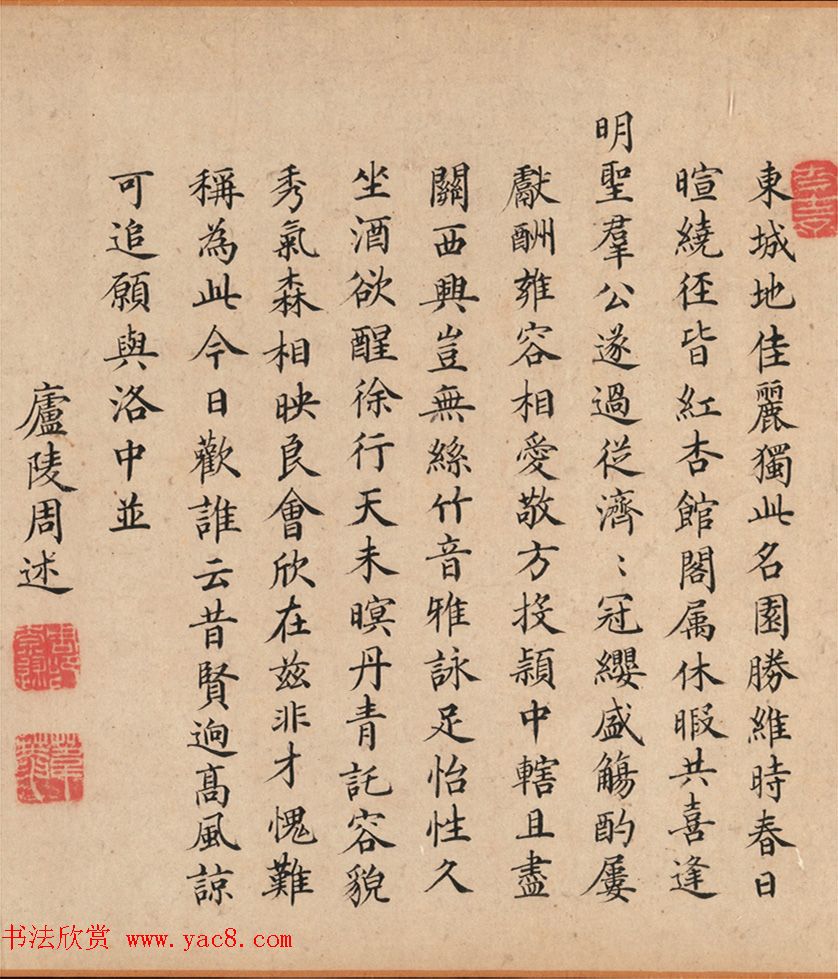 東城地佳麗獨此名園勝維時春日
暄繞徑皆紅杏館閣属休暇共喜逢
明聖羣公遂過從濟〻冠纓盛觴酌屢
獻酬雍容相愛敬方投潁中轄且盡
關西興豈無絲竹音雅詠足怡性久
坐酒欲醒徐行天未暝丹青託容貌
秀氣森相映良會欣在兹非才愧難
稱為此今日歡誰云昔賢逈高風諒
可追願與洛中並
廬陵周述
书法欣赏 www.yac8.com